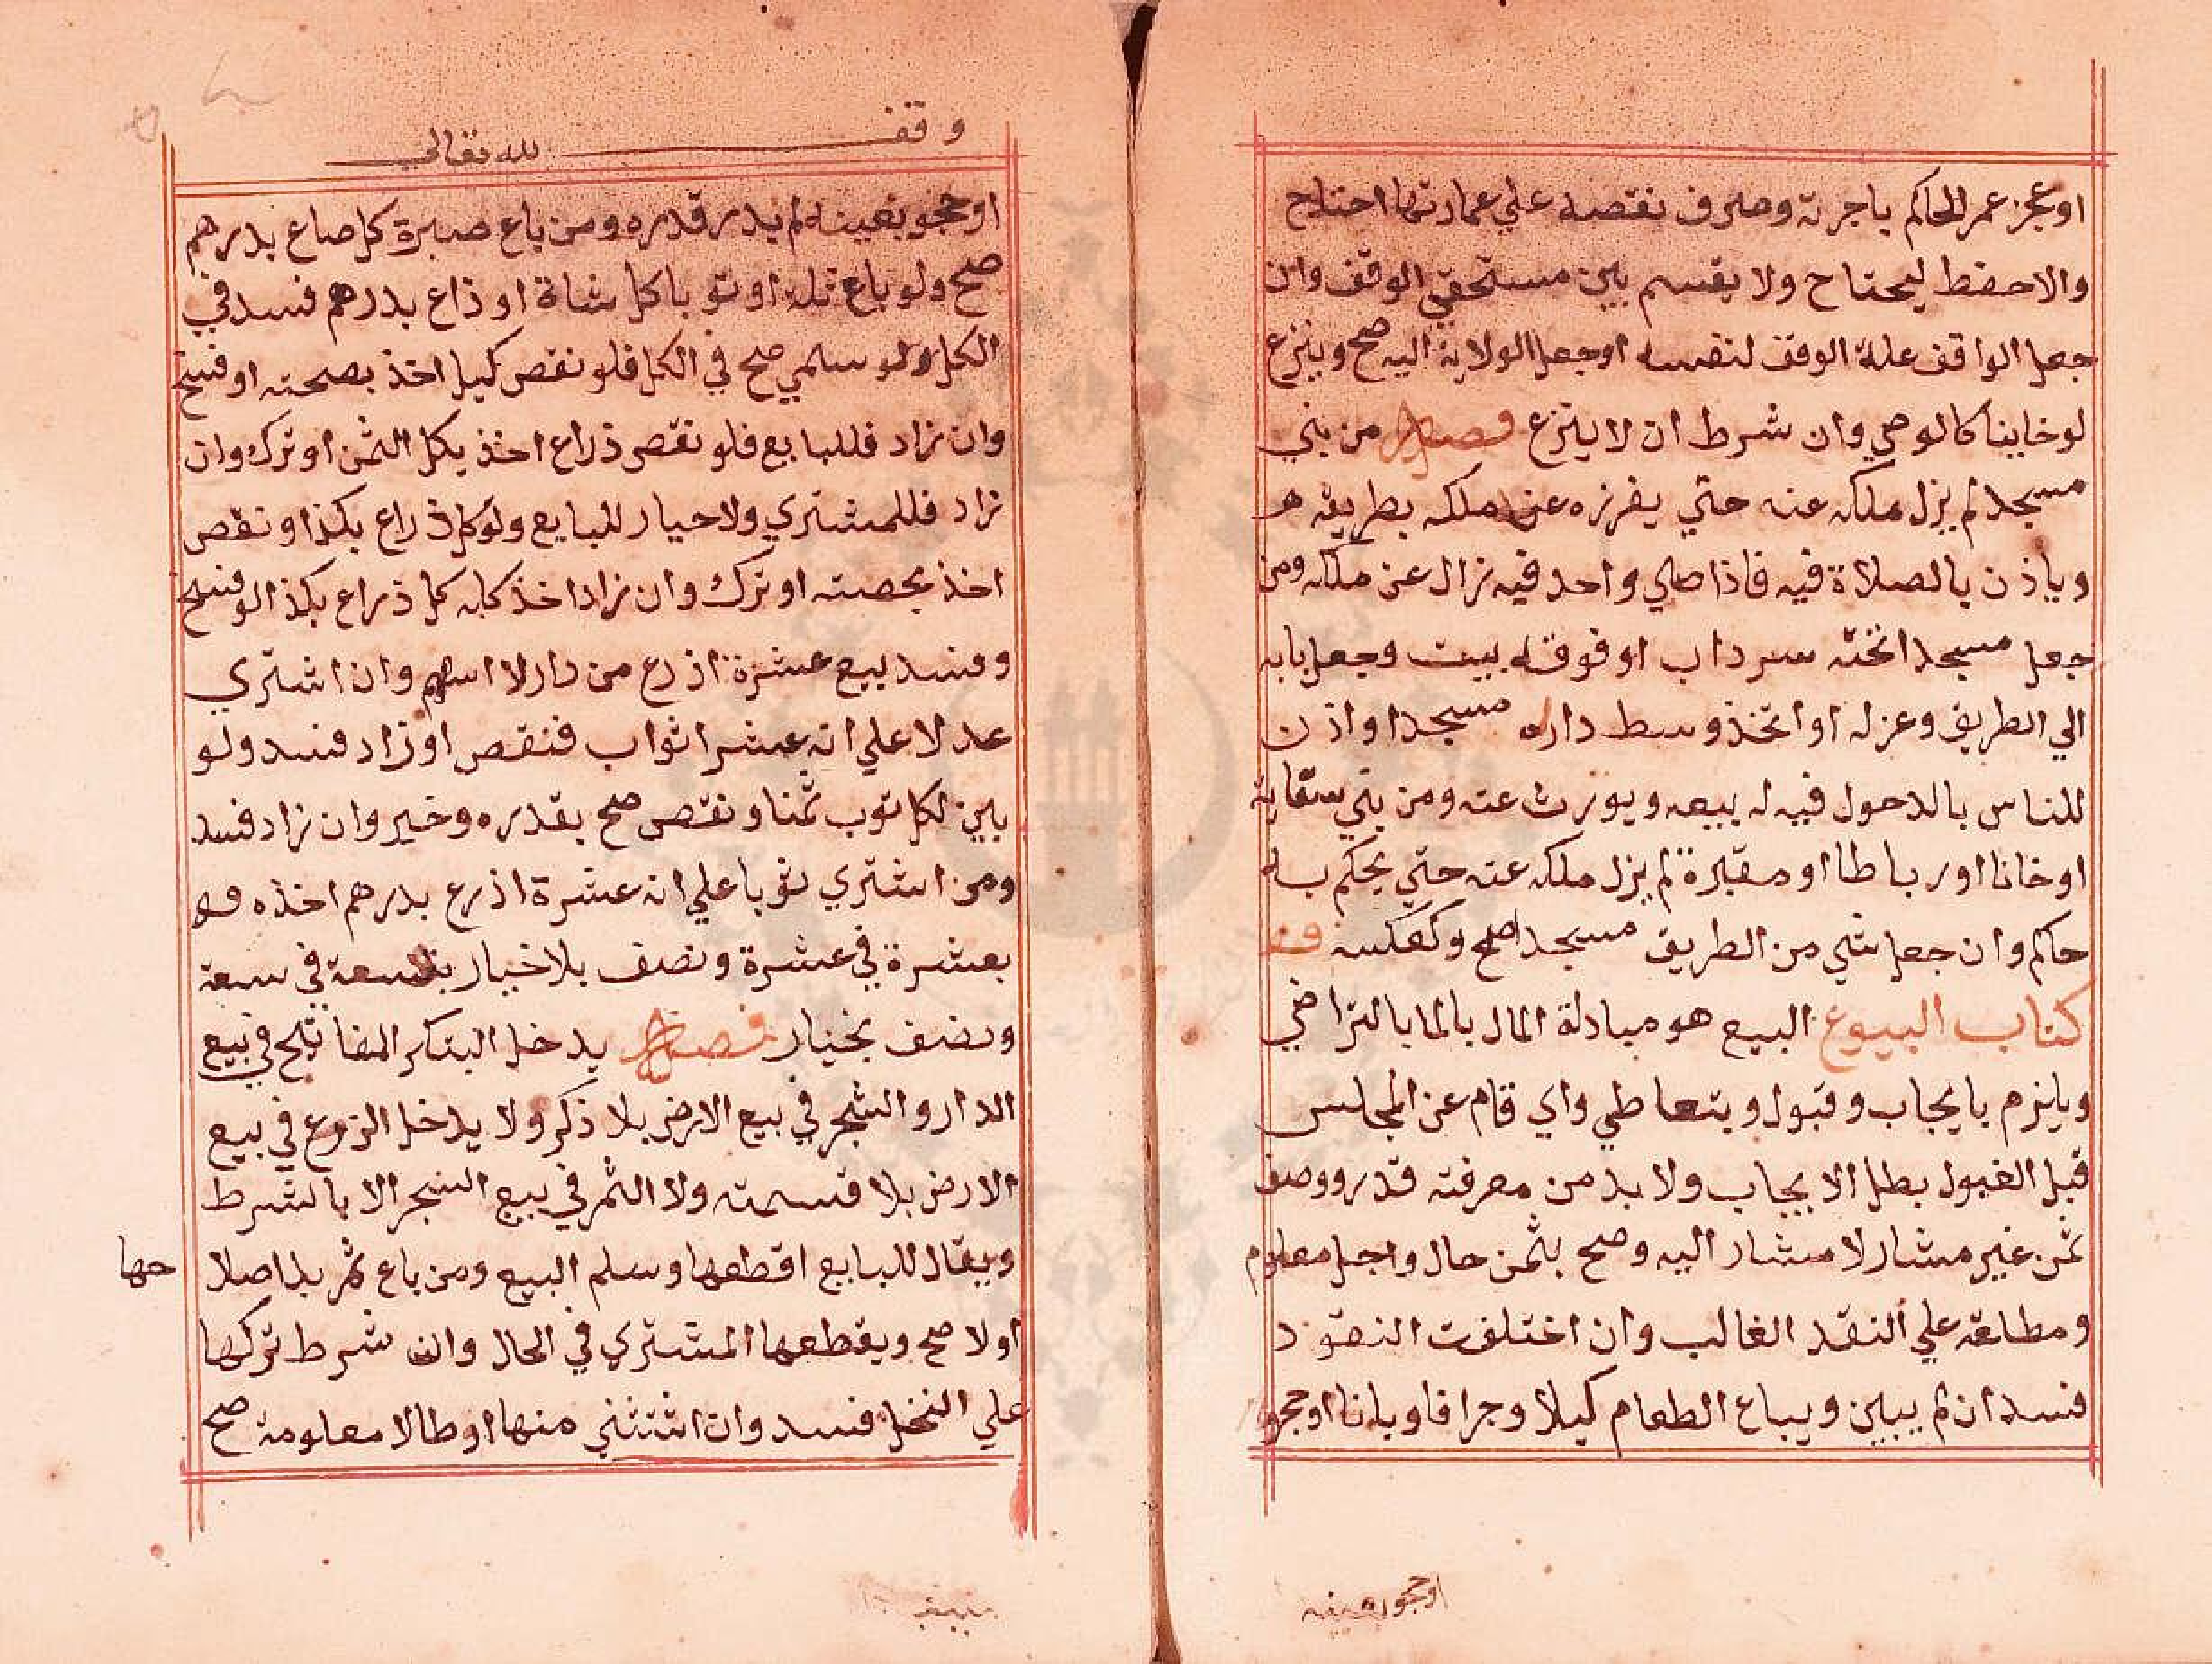 او عجز عمر الحاكم باجرته وصرف نقصه علي عمارتها احتاج
والاحفظ ليحتاح ولا يقسم بين مستحقي الوقف وان
جعل الواقف علة الوقف لنفسه اوجعل الولاية اليه صح وينزع
لوخاينا كالوصي وان شرط ان لا ينزع فصل من بني
مسجد لم يزل ملكه عنه حتي يفرزه عن ملكه بطريقه
وياذن بالصلاة فيه فاذا صلي واحد فيه زال عن ملكه ومن
جعل مسجدا تخته سرداب او فوقه بيت وجعل بابه
الي الطريق وعزله او اتخذ وسط داره مسجدا واذن
للناس بالدحول فيه له بيعه ويورث عنه ومن بني سقاية
اوخانا اورباطا او مقبرة لم يزل ملكه عنه حتي يحكم به
حاكم وان جعل شي من الطريق مسجدا صح وكعكسه
كتاب البيوع البيع هو مبادلة المال بالما بالتراضي
ويلزم بايجاب وقبول وبتعاطي واي قام عن المجلس
قبل القبول بطل الايجاب ولا بد من معرفته قدر ووصف
ثمن غير مشار لا مشار اليه وصح بثمن حال واجل معلوم
ومطلقه علي النقد الغالب وان اختلفت النقود
فسد ان لم يبين ويباع الطعام كيلا وجرافا وبانا اوججو
اوججو بعينه
وقف لله تعالي
اوججو بعينه لم يدر قدره ومن باع صبرة كل صاع بدرهم
صح ولو باع ثلة او توبا كل شاة او ذاع بدرهم فسد في
الكل ولو سلمي صح في الكل فلو نقص كيل اخذ بصحته او فسخ
وان زاد فللبايع فلو نقص ذراع اخذ بكل الثمن او ترك وان
زاد فللمشتري ولا حيار للبايع ولو كل ذراع بكذا ونقص
اخذ بحصته او ترك وان زاد اخذ كله كل ذراع بكذا او فسخ
وفسد بيع عشرة اذرع من دار لا اسهم وان اشتري
عدلا علي انه عشر اثواب فنقص او زاد فسد ولو
بين لكل توب ثمنا ونقص صح بقدره وخير وان زاد فسد
ومن اشتري ثوبا علي انه عشرة اذرع بدرهم اخذه
بعشرة في عشرة ونصف بلا خيار بتسعة في سعة
ونصف بخيار فصل يدخل البتكر المفاتلح في بيع
الدار والشجر في بيع الارض بلا ذكر ولا يدخل الزرع في بيع
الارض بلا قسمته ولا الثمر في بيع الشجر الا بالشرط
ويقال للبايع اقطعها وسلم البيع ومن باع ثمر بدا صلا حها
اولا صح ويقطعها المشتري في الحال وان شرط تركها
علي النخل فسد وان اشتثني منها اوطالا معلومة صح